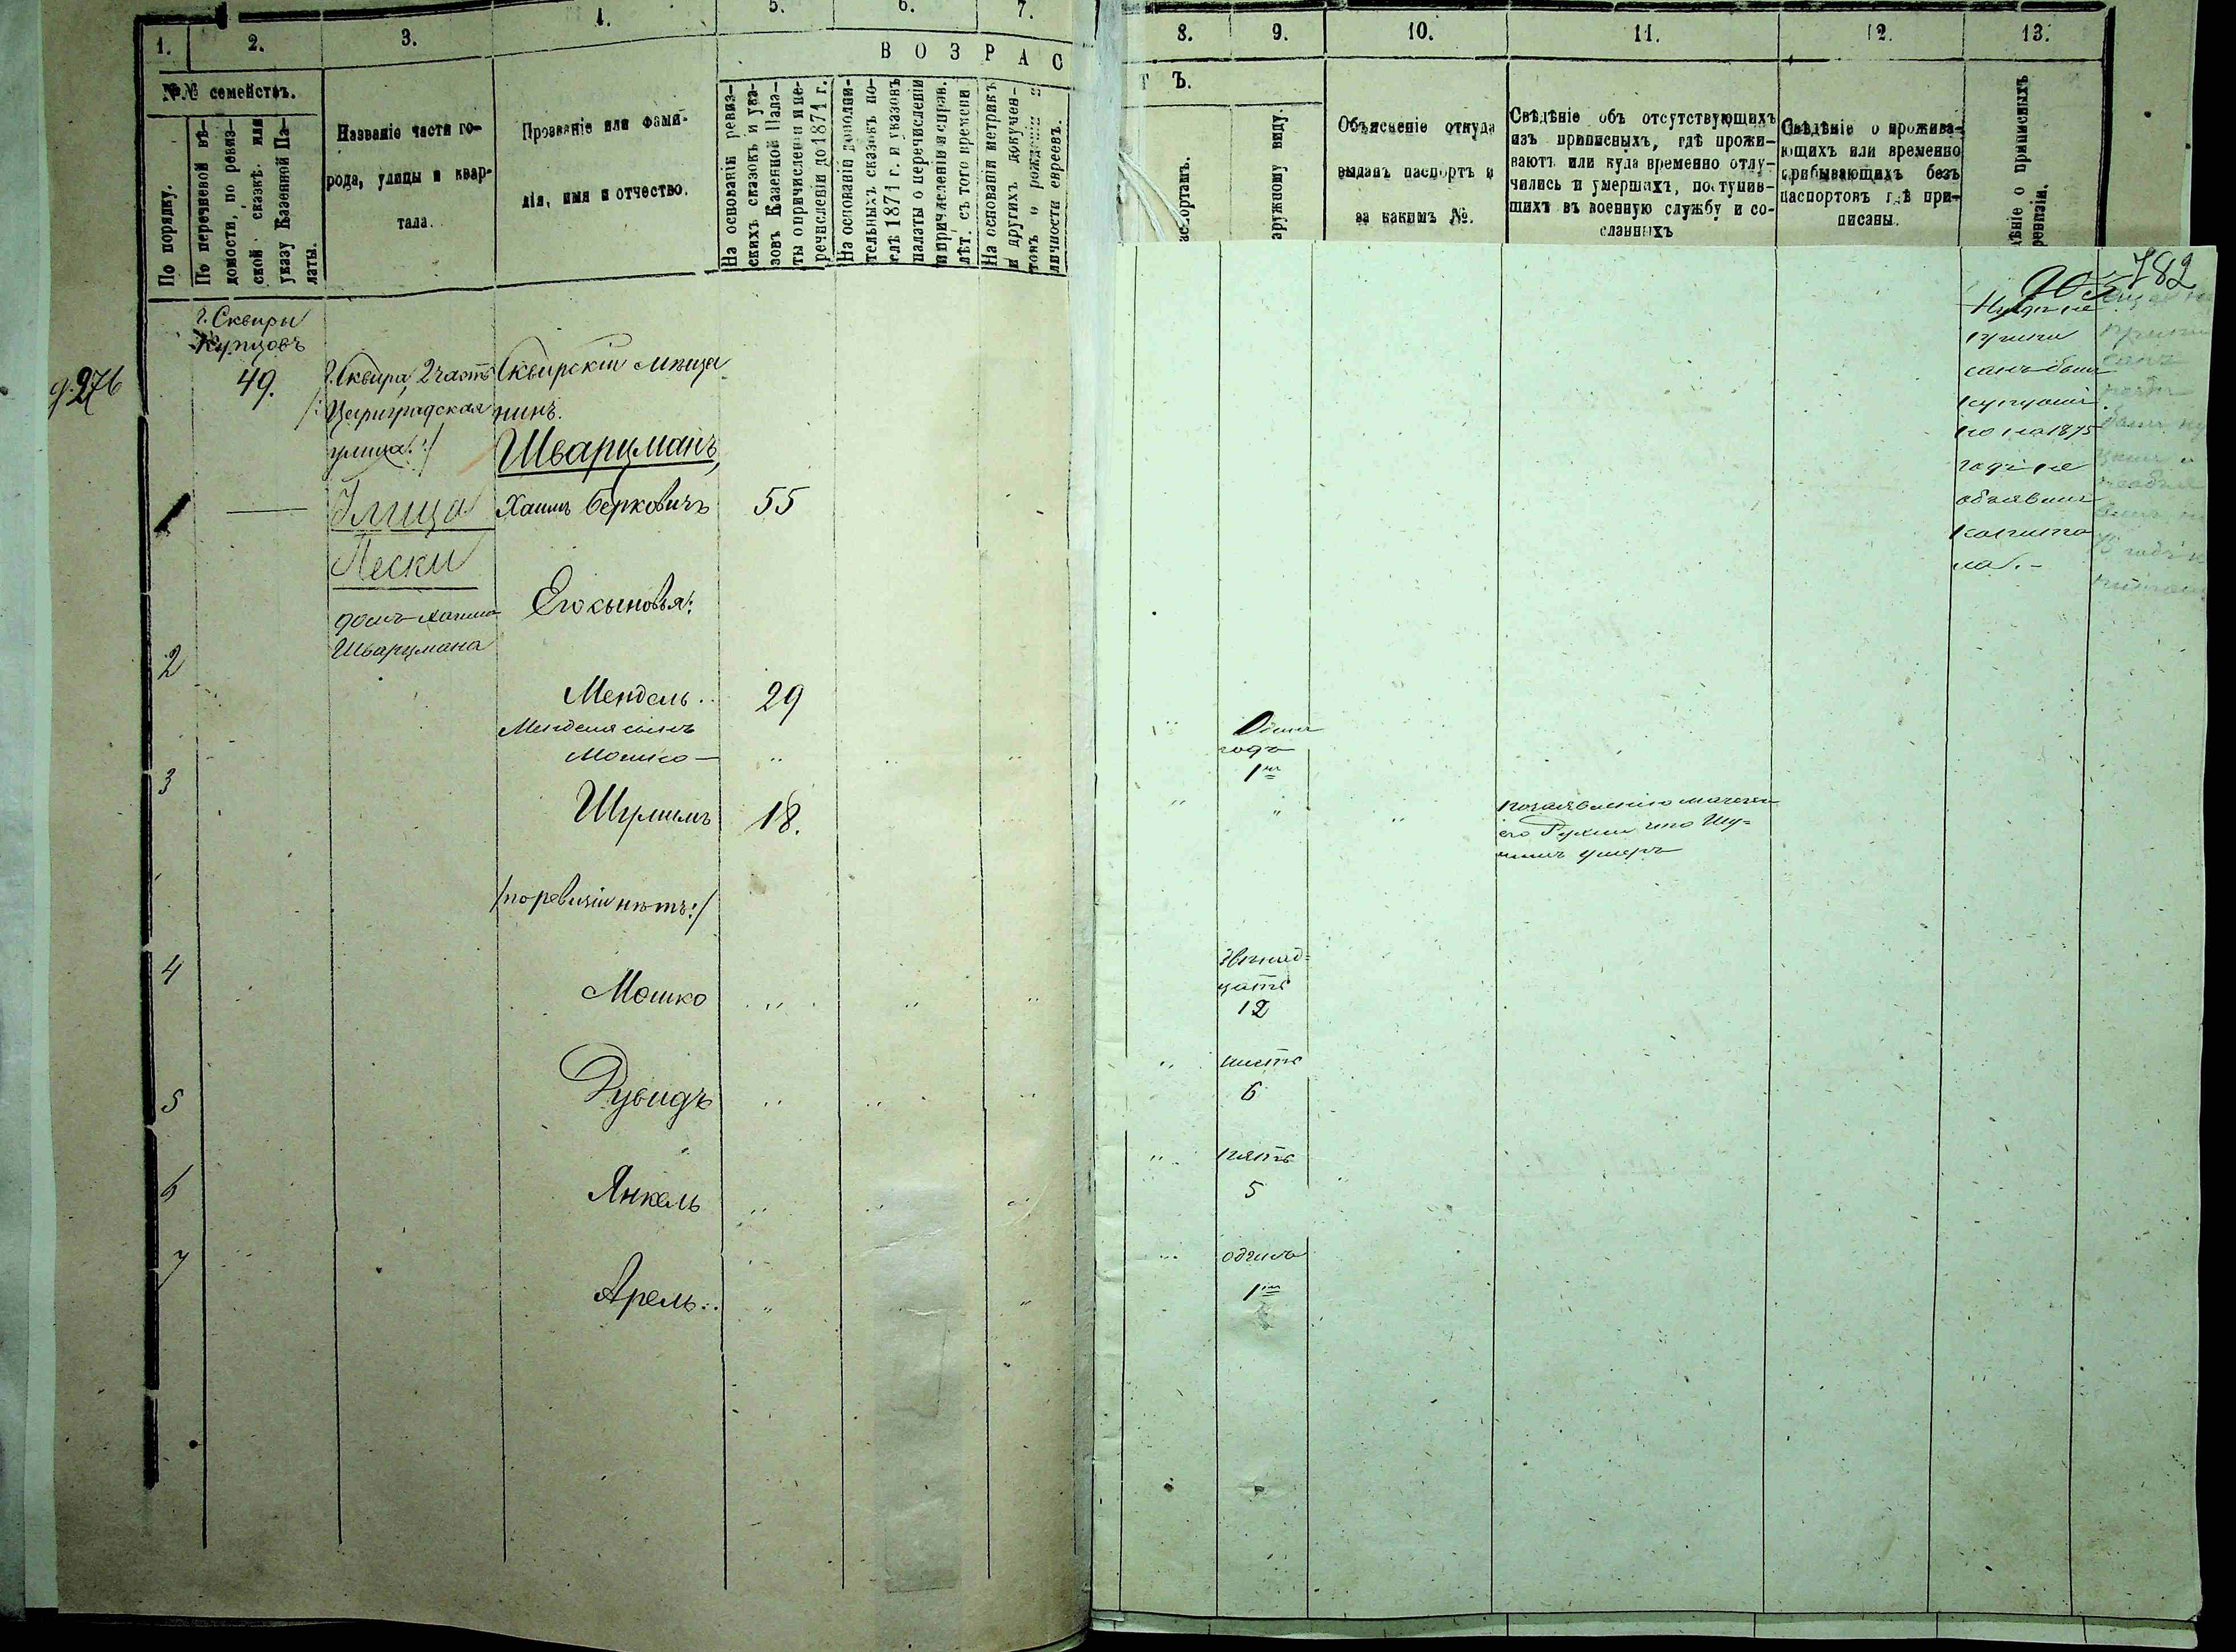 1.
2.
3.
4.
5.
6.
7.
8.
9.
10.
11.
12.
13.
ВОЗРАС
Т Ъ.
№№ семействъ.
По порядку.
По перечневой вѣ-
домости, по ревиз-
ской сказкѣ или
указу Казенной Па-
латы.
Названіе части го-
рода, улицы и квар-
тала.
Прозваніе или фами-
лія, имя и отчество.
На основаніи ревиз-
скихъ сказокъ и ука-
зовъ Казенной Пала-
ты о причисленіи и пе-
речисленіи до 1871 г.
На основаніи дополни-
тельныхъ сказокъ по-
слѣ 1871 г. и указовъ
палаты о перечисленіи
и причисленіи и справ.
лѣт. съ того времени.
На основаніи метрикъ
и другихъ докумен-
товъ о рожденіи и
личности евреевъ.
аспортамъ.
аружному виду.
Объясненіе откуда
выданъ паспортъ и
за какимъ №.
Свѣдѣніе объ отсутствующихъ
изъ приписныхъ, гдѣ прожи-
ваютъ или куда временно отлу-
чились и умершихъ, поступив-
шихъ въ военную службу и со-
сланныхъ
Свѣдѣніе о прожива-
ющихъ или временно
прибывающихъ безъ
паспортовъ гдѣ при-
писаны.
дѣніе о приписныхъ
ревизіи.
782
г. Сквиры
Купцовъ
49.
д. 276
г. Сквира, 2 часть
/: Цариградская
улица :/
Улица
Пески
домъ Хаима
Шварцмана
Сквирскій мѣща
нинъ.
Шварцманъ,
1
Хаимъ Берковичъ
55
Его сыновья:
2
Мендель
29
Менделя сынъ
Мошко
Одинъ
годъ
1
3
Шулимъ
18.
по заявленію мачехи
его Рухли что Шу-
лимъ умеръ
/по ревизіи нѣтъ:/
4
Мошко
Двѣнад=
цать
12
5
Дувидъ
шесть
6
6
Янкель
пять
5
7
Арель
одинъ
1
купцами
на 1875
годъ не
объявили
капита
ла. -